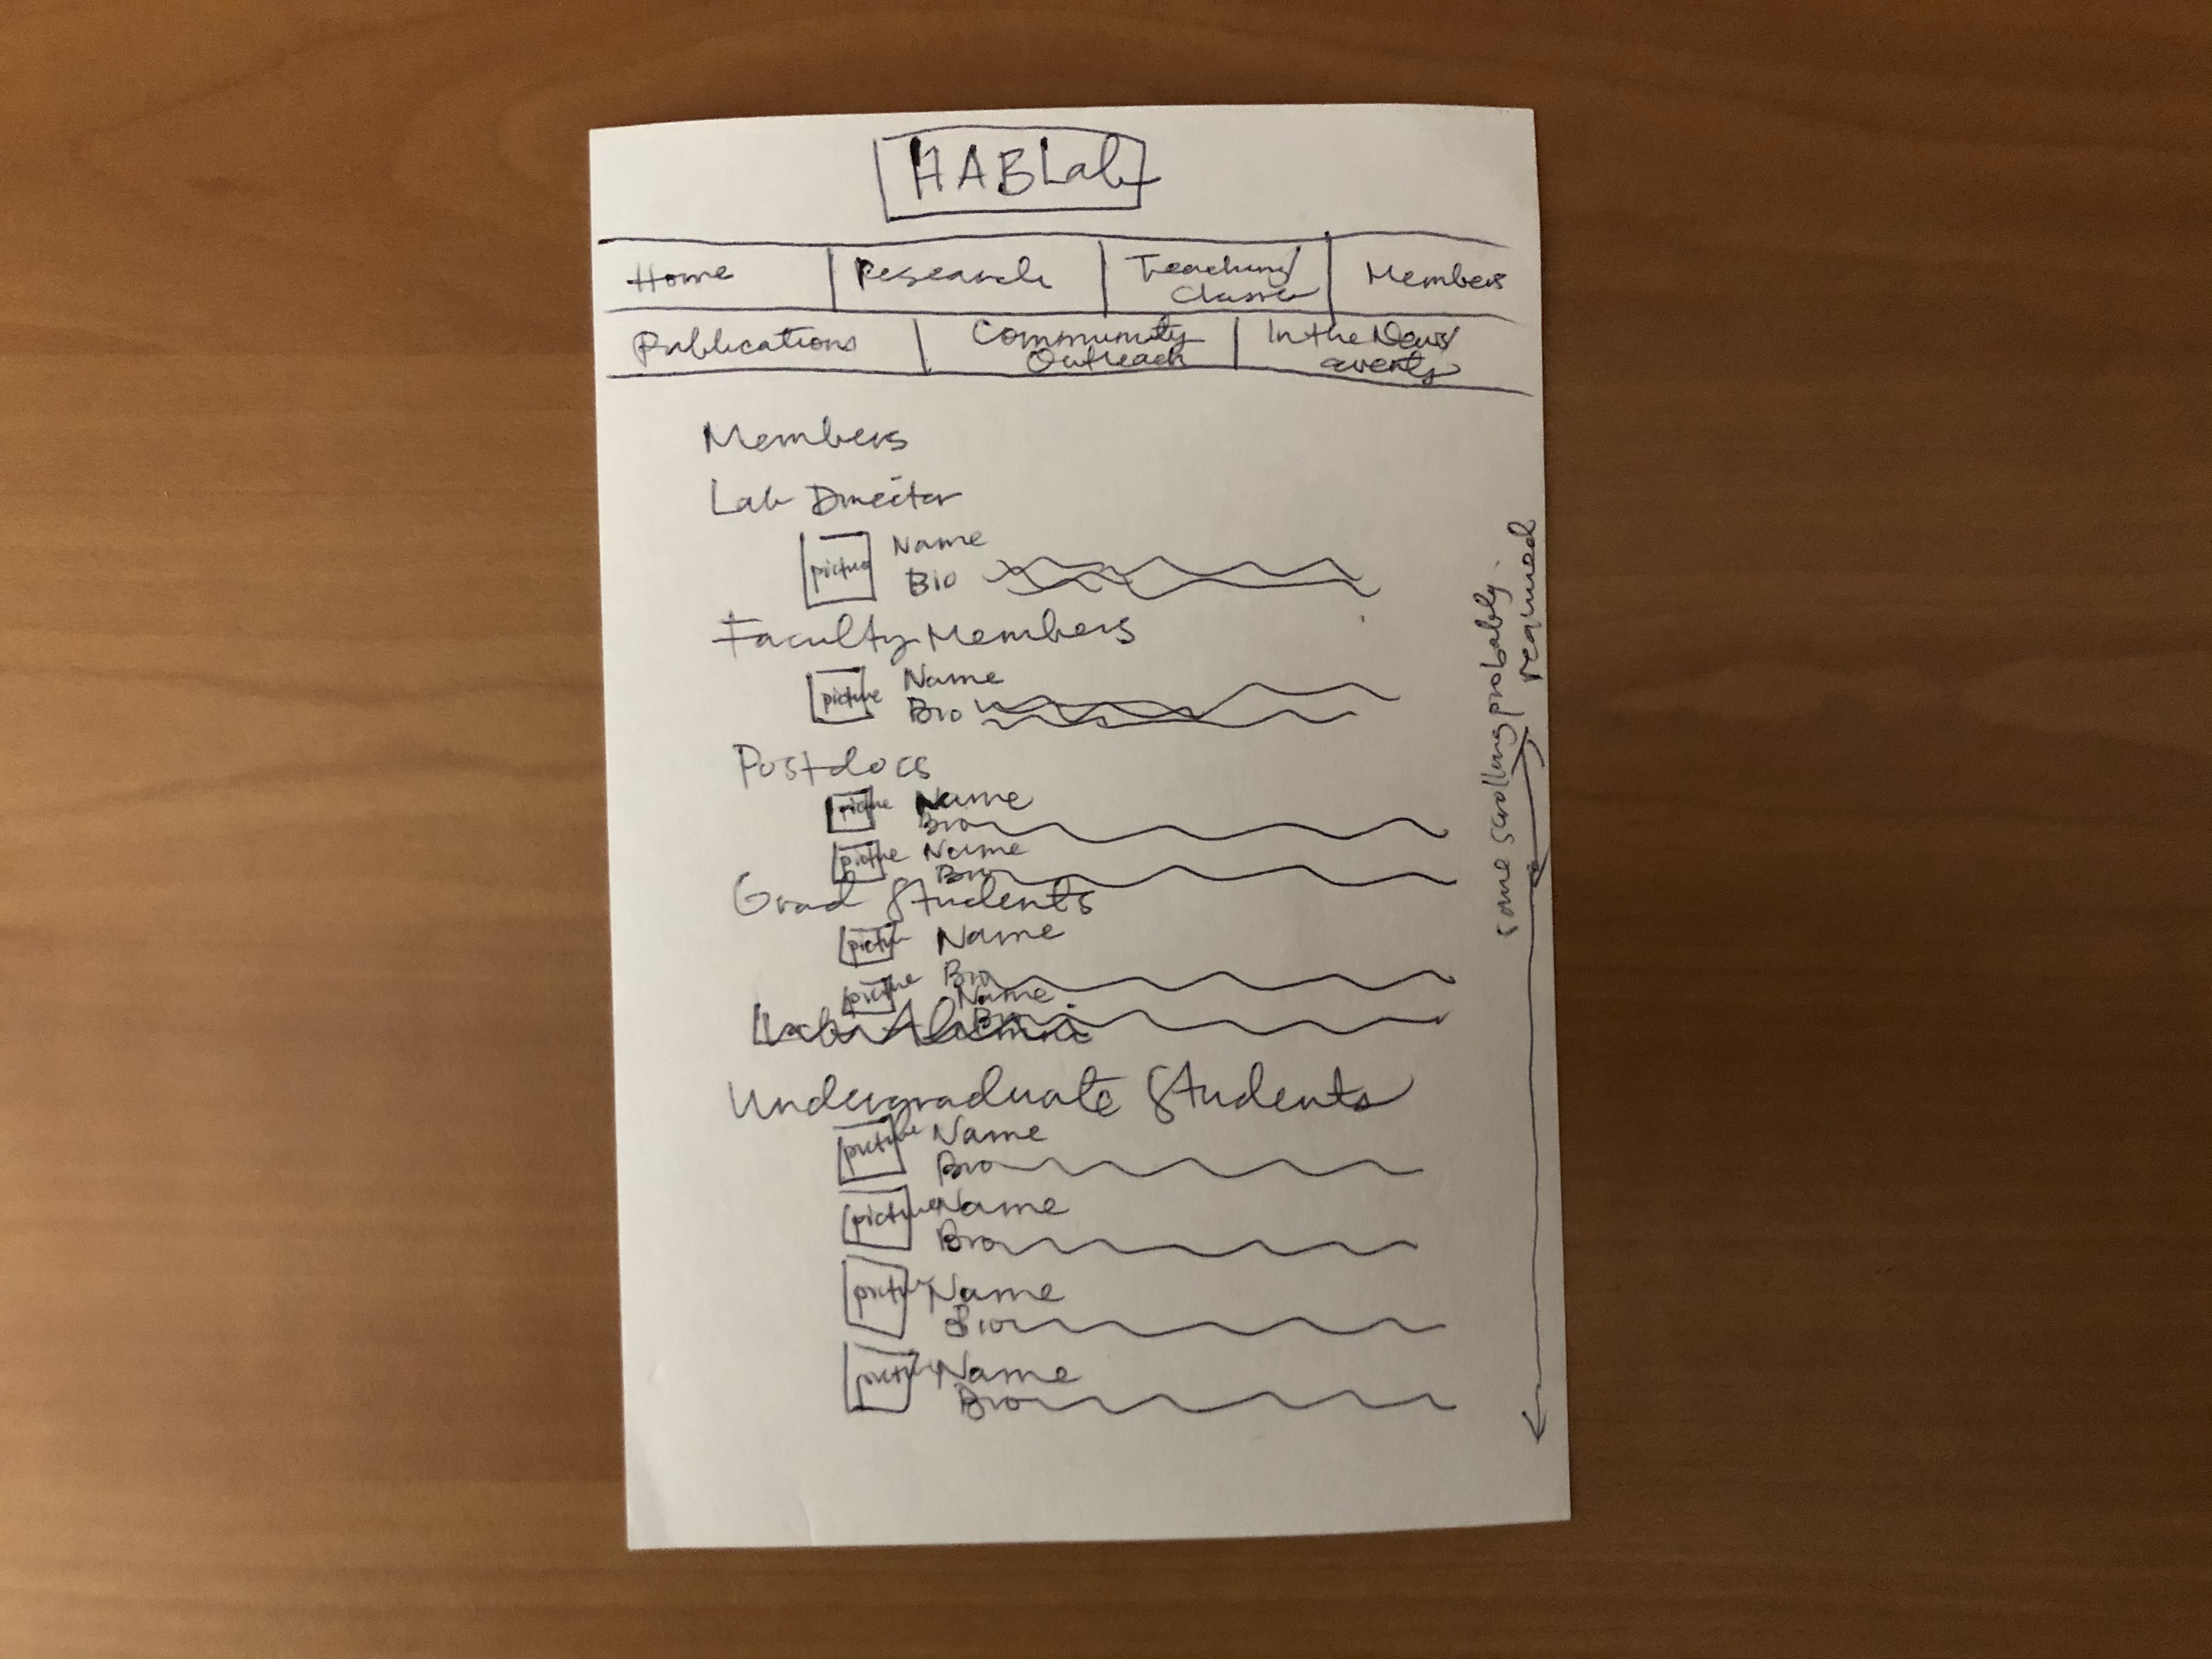 HABLab
Home | Research | Teaching/ Classes | Members
Publications | Community Outreach | In the News/ events
Members
Lab Director
picture Name
Bio
Faculty Members
picture Name
Bio
Postdocs
picture Name
Bio
picture Name
Bio
Grad Students
picture Name
Bio
picture Name
Bio
Lab Alumni
Undergraduate Students
picture Name
Bio
picture Name
Bio
picture Name
Bio
picture Name
Bio
some scrolling probably
required